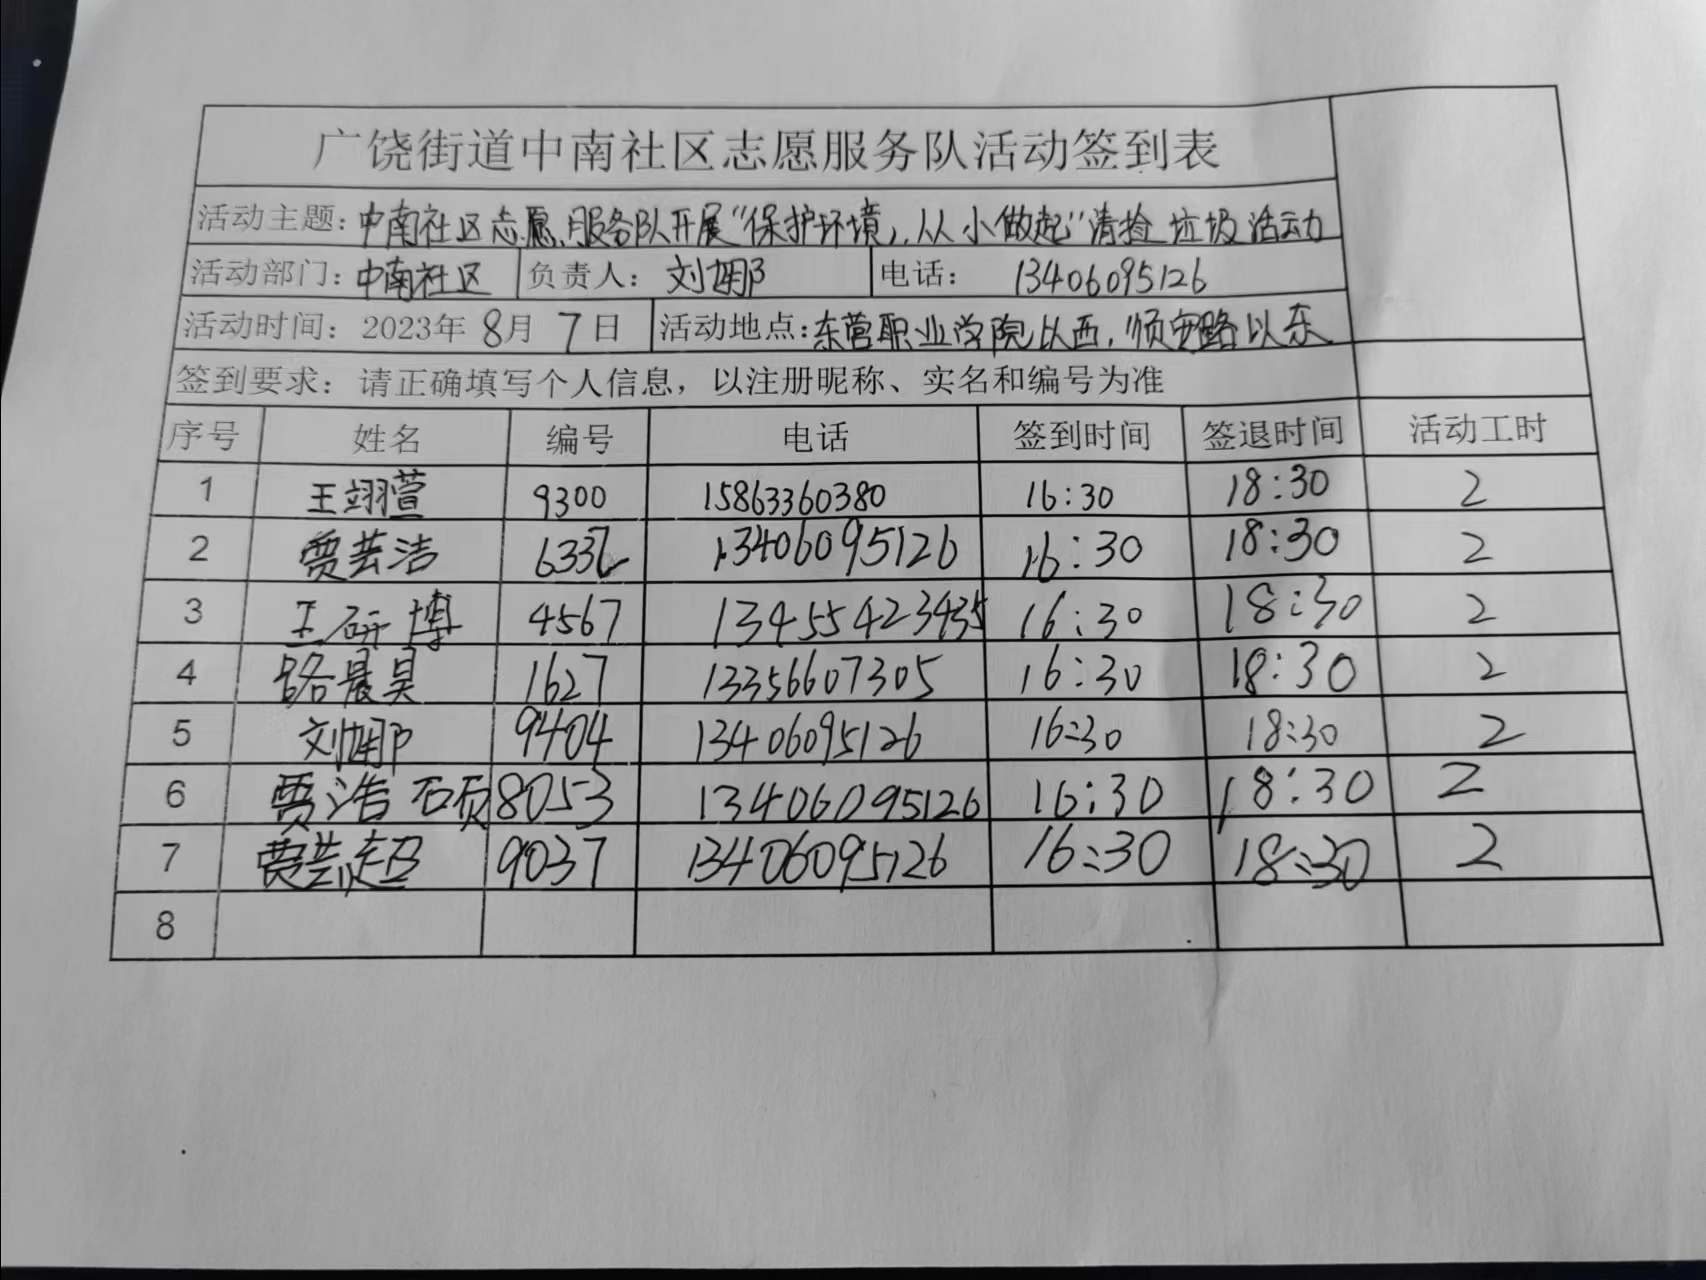 广饶街道中南社区志愿服务队活动签到表
活动主题：中南社区志愿服务队开展“保护环境，从小做起”清捡垃圾活动
活动部门：中南社区 负责人：刘娜 电话：13406095126
活动时间：2023年8月7日 活动地点：东营职业学院以西，顺安路以东
签到要求：请正确填写个人信息，以注册昵称、实名和编号为准
序号 姓名 编号 电话 签到时间 签退时间 活动工时
1 王翊萱 9300 15863360380 16:30 18:30 2
2 贾芸洁 13406095126 16:30 18:30 2
3 王研博 4567 16:30 18:30 2
4 路晨昊 1627 13356607305 16:30 18:30 2
5 刘娜 9404 13406095126 16:30 18:30 2
6 贾浩硕 8053 13406095126 16:30 18:30 2
7 贾芸超 9037 13406095126 16:30 18:30 2
8